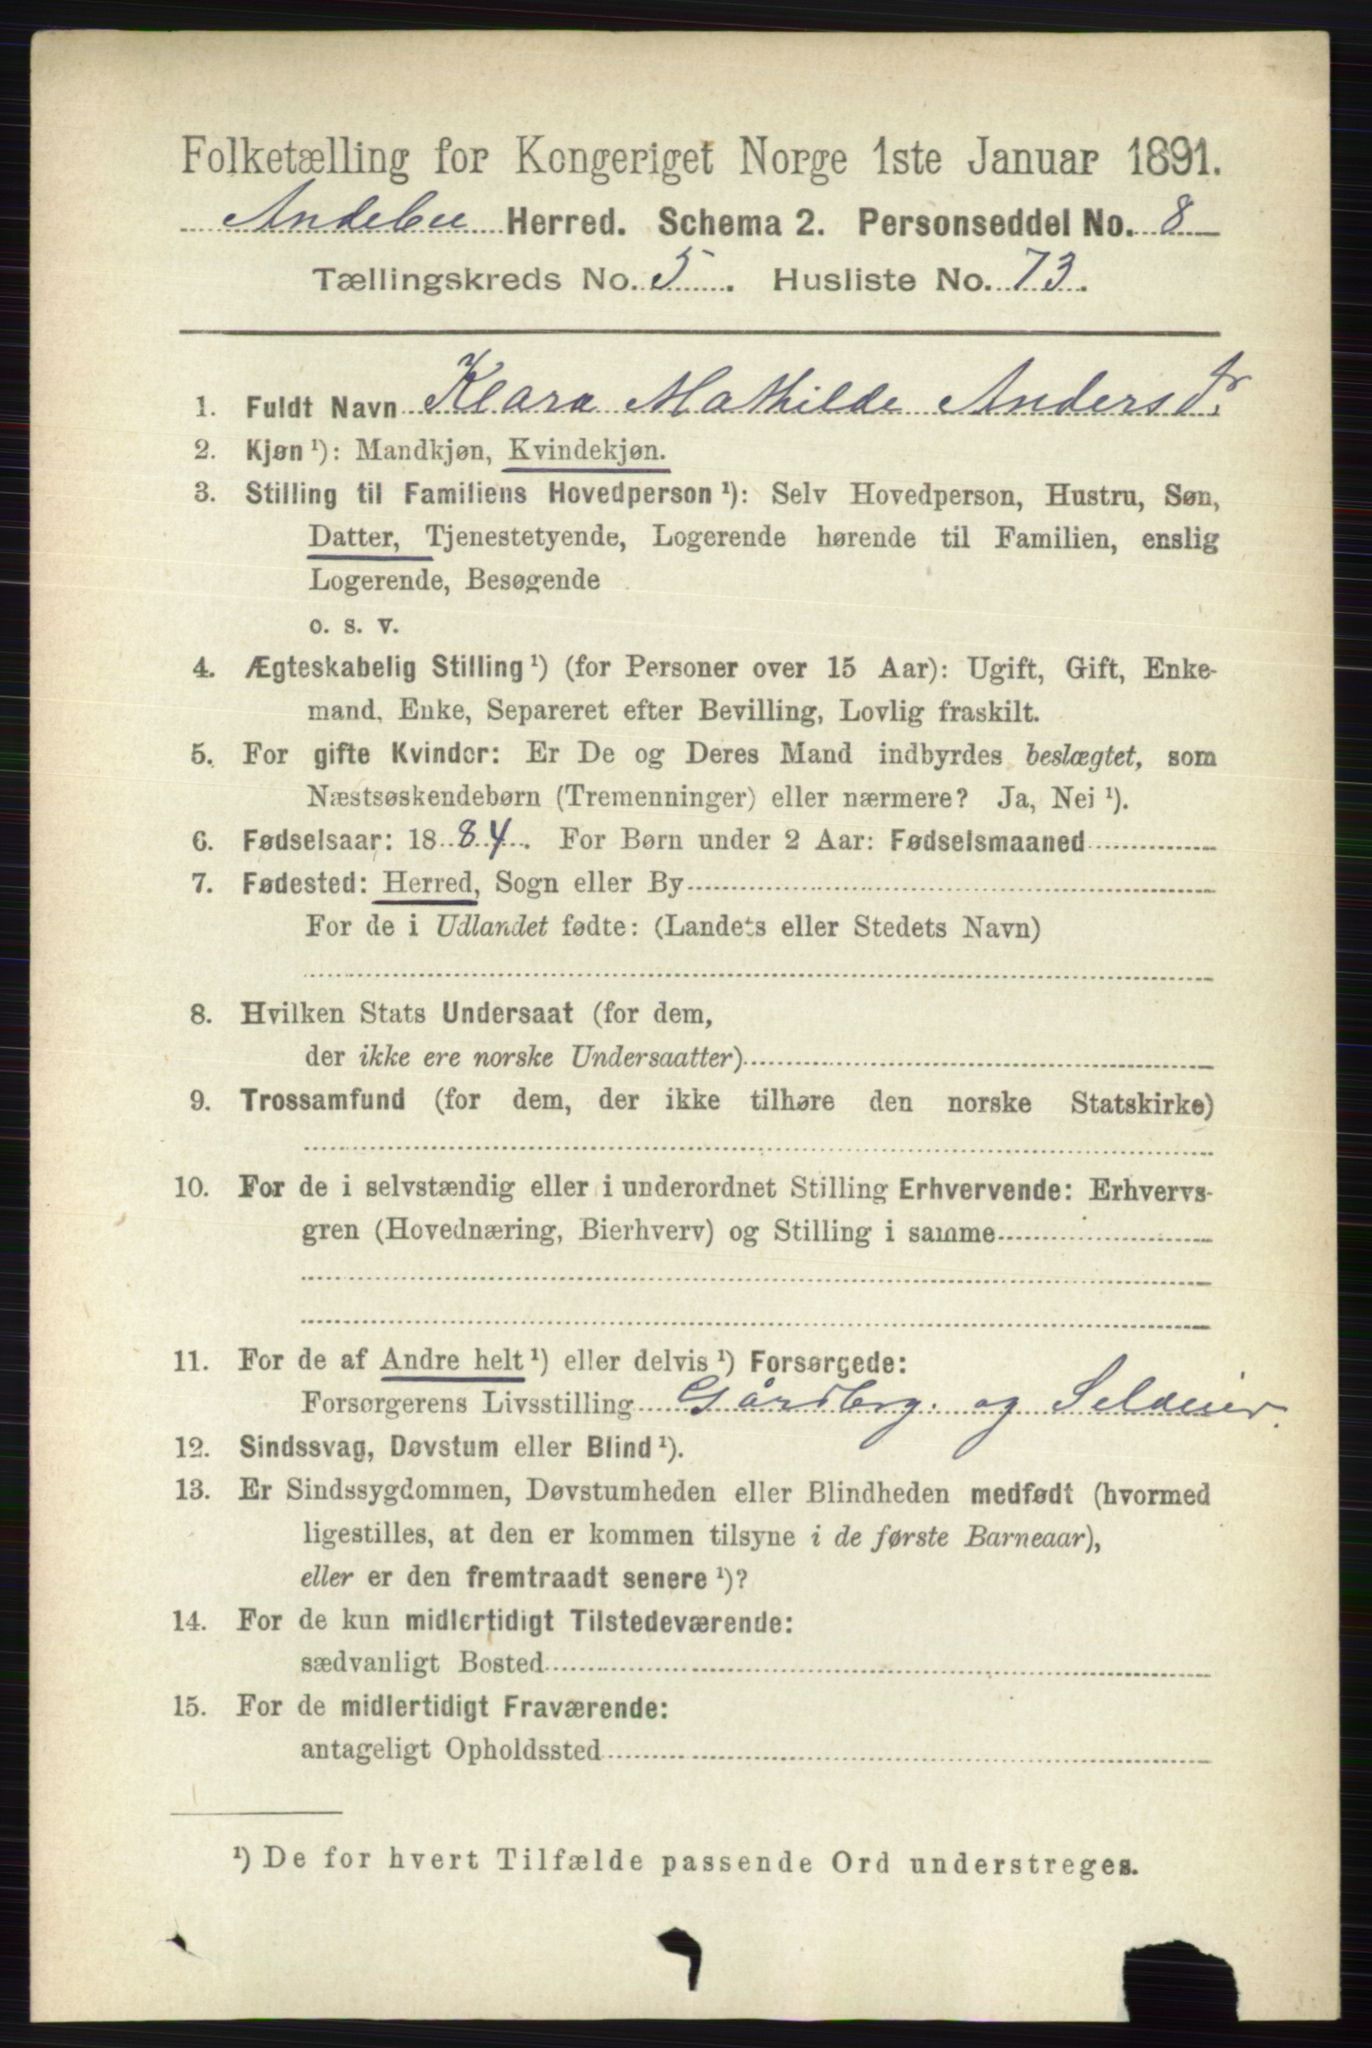 Folketælling for Kongeriget Norge 1ste Januar 1891.
Andebu Herred. Schema 2. Personseddel No. 8
Tællingskreds No. 5. Husliste No. 73.
1. Fuldt Navn Klara Mathilde Andersdr.
2. Kjøn ¹): Mandkjøn, Kvindekjøn.
3. Stilling til Familiens Hovedperson ¹): Selv Hovedperson, Hustru, Søn,
Datter, Tjenestetyende, Logerende hørende til Familien, enslig
Logerende, Besøgende
o. s. v.
4. Ægteskabelig Stilling ¹) (for Personer over 15 Aar): Ugift, Gift, Enke-
mand, Enke, Separeret efter Bevilling, Lovlig fraskilt.
5. For gifte Kvinder: Er De og Deres Mand indbyrdes beslægtet, som
Næstsøskendebørn (Tremenninger) eller nærmere? Ja, Nei ¹).
6. Fødselsaar: 1884. For Børn under 2 Aar: Fødselsmaaned
7. Fødested: Herred, Sogn eller By
For de i Udlandet fødte: (Landets eller Stedets Navn)
8. Hvilken Stats Undersaat (for dem,
der ikke ere norske Undersaatter)
9. Trossamfund (for dem, der ikke tilhøre den norske Statskirke)
10. For de i selvstændig eller i underordnet Stilling Erhvervende: Erhvervs-
gren (Hovednæring, Bierhverv) og Stilling i samme
11. For de af Andre helt ¹) eller delvis ¹) Forsørgede:
Forsørgerens Livsstilling Gårdbrg. og Seldeier.
12. Sindssvag, Døvstum eller Blind ¹).
13. Er Sindssygdommen, Døvstumheden eller Blindheden medfødt (hvormed
ligestilles, at den er kommen tilsyne i de første Barneaar),
eller er den fremtraadt senere ¹)?
14. For de kun midlertidigt Tilstedeværende:
sædvanligt Bosted
15. For de midlertidigt Fraværende:
antageligt Opholdssted
¹) De for hvert Tilfælde passende Ord understreges.